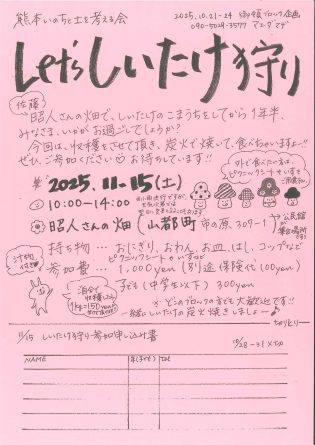 熊本いのちと土を考える会
2025.10.21-24 御領ブロック企画
090-5024-3577
Let's しいたけ狩り
佐藤
昭人さんの畑で、しいたけのこまうちをしてから1年半、
みなさま、いかがお過ごしでしょうか?
今回は、収穫をさせて頂き、炭火で焼いて、食べちゃいますよ〜!!
ぜひ、ご参加ください♡お待ちしています!!
外で食べたい方は、
ピクニックシートやいすを
ご用意下さい
2025.11.15(土)
10:00-14:00
昭人さんの畑(山都町 市の原、309-1
→公民館が
集合場所
です
汁物
付き
持ち物…おにぎり、おわん、お皿、はし、コップなど
ピクニックシートやいすなど
参加費…1,000yen(別途保険代100yen)
子ども(中学生以下)300yen
泊分で
収穫したら
1k=150yen
※どこのブロックの方でも大歓迎です!!
一緒にしいたけの炭火焼きしましょー♪
------きりとり------
11/15 しいたけ狩り参加申し込み書
10/28-31×tra
NAME 年(子ども) Tel